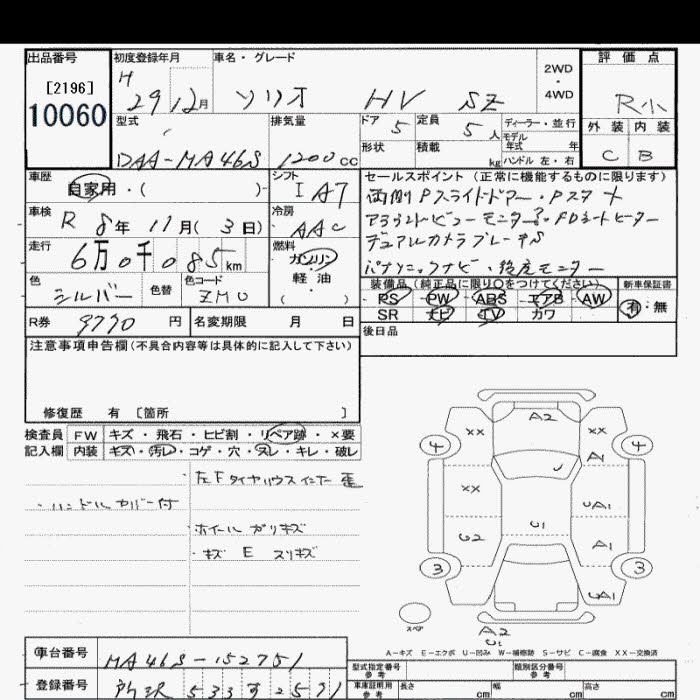 出品番号 初度登録年月 車名・グレード 2WD・4WD 評価点
[2196] H 29 12月 ソリオ HV SZ R小
10060
型式 排気量 ドア 定員 ディーラー・並行 外装 内装
DAA-MA46S 1200cc 5 5人 モデル年式 年 C B
形状 積載 kg ハンドル 左・右
車歴 シフト セールスポイント(正常に機能するものに限ります)
自家用・( ) IAT 両側Pスライドドアー・Pスタート
車検 冷房 アラウンドビューモニター・FDシートヒーター
R 8年 11月(3日) AAC デュアルカメラブレーキS
走行 燃料 パナソニックナビ・後席モニター
6万0千085km ガソリン
軽・油
( )
色 色替 色コード 装備品(純正品に限り○をつけてください) 新車保証書
シルバー ZMU PS PW ABS エアB AW 有・無
SR ナビ TV カワ
R券 9770円 名変期限 月 日 後日品
注意事項申告欄(不具合内容等は具体的に記入して下さい)
修復歴 有 [箇所 ]
検査員 FW キズ・飛石・ヒビ割・リペア跡・×要
記入欄 内装 キズ・汚レ・コゲ・穴・スレ・キレ・破レ
左Fタイヤハウスインナー
・ハンドルカバー付
ホイールガリキズ
・キズ E スリキズ
A2
XX XX
4 4
A1
XX UA1
U1
U2 A1
3 3
UA1
スペア A2
U1
A-キズ E-エクボ U-凹み W-補修跡 S-サビ C-腐食 XX-交換済
車台番号 MA46S-152751 型式指定番号 参考 類別区分番号 参考
登録番号 所沢 533 す 2571 車庫証明用 参考 長さ cm 幅 cm 高さ cm